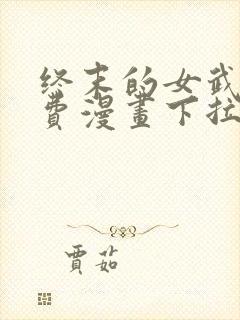 终末的女武
费漫画下拉
贾茹